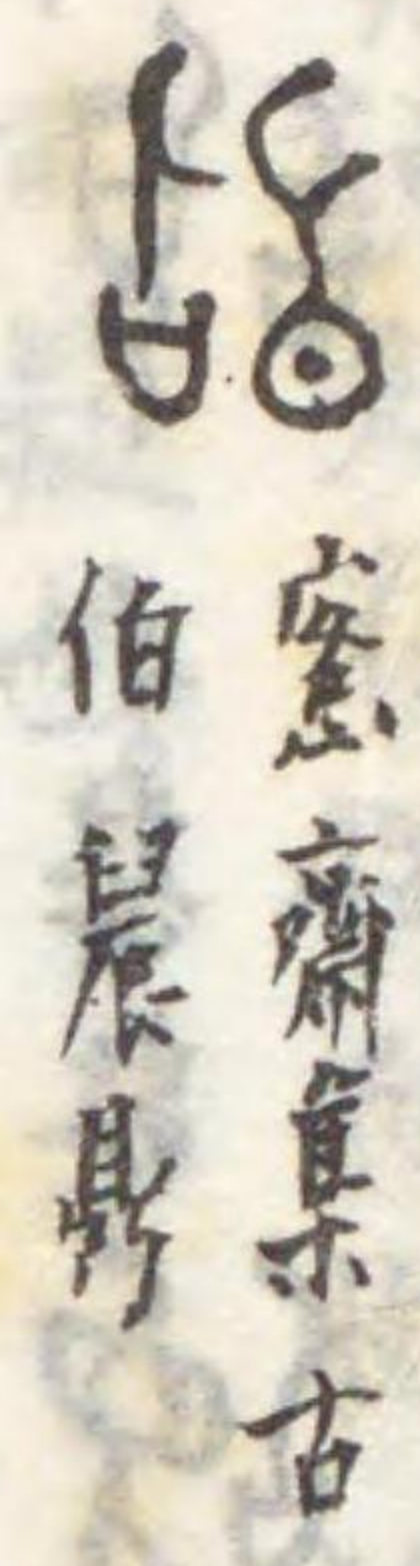 愙齋集古
伯䢅鼎